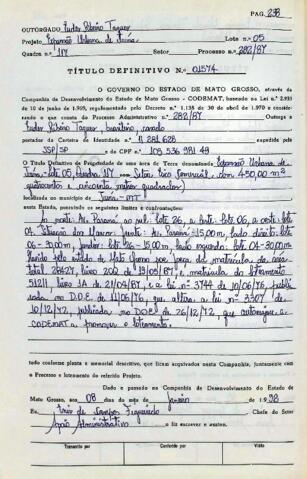 PAG. 238
OUTORGADO Euder Ribeiro Taquer
Projeto Expansão Urbana de Juína Lote n.º 05
Quadra n.º 114 Setor Processo n.º 282/87
TÍTULO DEFINITIVO N.º 01574
O GOVERNO DO ESTADO DE MATO GROSSO, através da
Companhia de Desenvolvimento do Estado de Mato Grosso - CODEMAT, baseado na Lei n.º 2.933
de 10 de junho de 1969, regulamentado pelo Decreto n.º 1.138 de 30 de abril de 1.970 e considerando
o que consta do Processo Administrativo n.º 282/87 Outorga a
Euder Ribeiro Taquer, brasileiro, casado
portador da Carteira de Identidade n.º M 281 628 expedida pela
SSP/SP e do CPF n.º 109 536 981 49
O Título Definitivo de Propriedade de uma área de Terra denominada Expansão Urbana de
Juína - lote 05, Quadra 114 com Setor Comercial, com 450,00 m²
quatrocentos e cincoenta metros quadrados
localizado no município de Juína - MT
neste Estado, possuindo os seguintes limites e confrontações:
a norte: Av. Paraná ao sul: Lote 26, a leste: lote 06, a oeste: lote
04. Situação dos Marcos: frente: Av. Paraná - 15,00 m, lado direito: lote
06 - 30,00 m, fundos: lote 26 - 15,00 m, lado esquerdo: lote 04 - 30,00 m
Havido pelo estado de Mato Grosso por força da matrícula da área
total 28427, livro 202 de 19/05/87, e matrícula do loteamento
51211, livro 1A de 21/04/87, e a lei nº 3744 de 10/06/76, publi
cada no D.O.E. de 11/06/76, que altera a lei nº 3307 de
10/12/72, publicada no DOE de 26/12/72, que autorizou a
CODEMAT a promover o loteamento.
tudo conforme planta e memorial descritivo, que ficam arquivados nesta Companhia, juntamente com
o Processo e loteamento do referido Projeto.
Dado e passado na Companhia de Desenvolvimento do Estado de
Mato Grosso, aos 08 dias do mês de Janeiro de 1998
Eu, de Campos Figueiredo Chefe do Setor
Apoio Administrativo o fiz escrever e assino.
Transcrito por Conferido por Visto